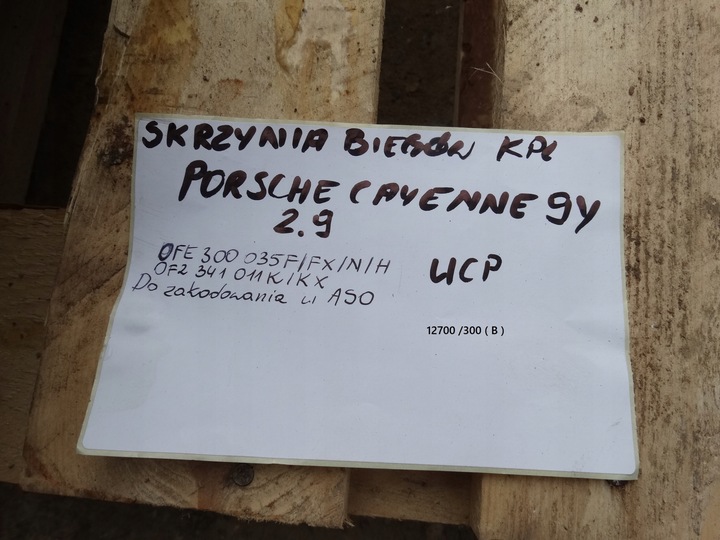 SKRZYNIA BIEGÓW KPL
PORSCHE CAYENNE 9Y
2.9
0FE 300 035F/FX/N/H
0F2 341 011K/KX
Do zakodowania w ASO
UCP
12700 /300 ( B )